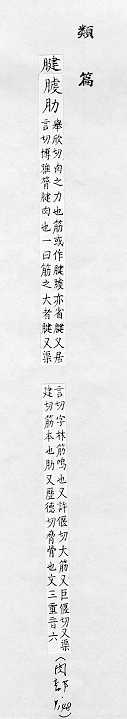 類篇
腱肋
舉欣切肉之力也筋或作腱亦省腱又居
言切博雅膂腱肉也一曰筋之大者腱又渠
言切字林筋鳴也又許偃切大筋又巨偃切又渠
建切筋本也肋又歷德切脅骨也文三重音六
(肉部